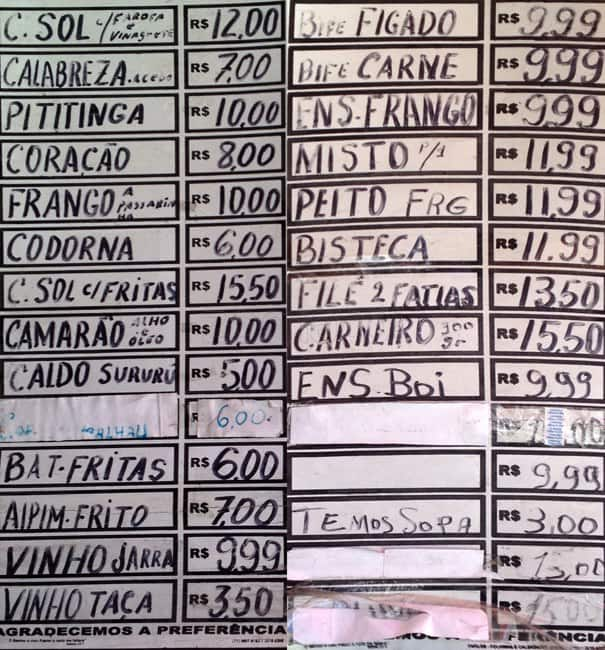 C. SOL c/ FAROFA e VINAGRETE R$ 12,00
CALABREZA R$ 7,00
PITITINGA R$ 10,00
CORAÇÃO R$ 8,00
FRANGO A PASSARINHA R$ 10,00
CODORNA R$ 6,00
C. SOL c/FRITAS R$ 15,50
CAMARÃO ALHO e ÓLEO R$ 10,00
CALDO SURURÚ R$ 5,00
6,00
BAT-FRITAS R$ 6,00
AIPIM-FRITO R$ 7,00
VINHO JARRA R$ 9,99
VINHO TAÇA R$ 3,50
AGRADECEMOS A PREFERÊNCIA
BIFE FIGADO R$ 9,99
BIFE CARNE R$ 9,99
ENS-FRANGO R$ 9,99
MISTO P/1 R$ 11,99
PEITO FRG R$ 11,99
BISTECA R$ 11.99
FILÉ 2 FATIAS R$ 13,50
CARNEIRO 300 gr R$ 15,50
ENS. BOI R$ 9,99
R$ 9,99
TEMOS SOPA R$ 3,00
R$ 13,00
R$ 15,00
FERÊNCIA